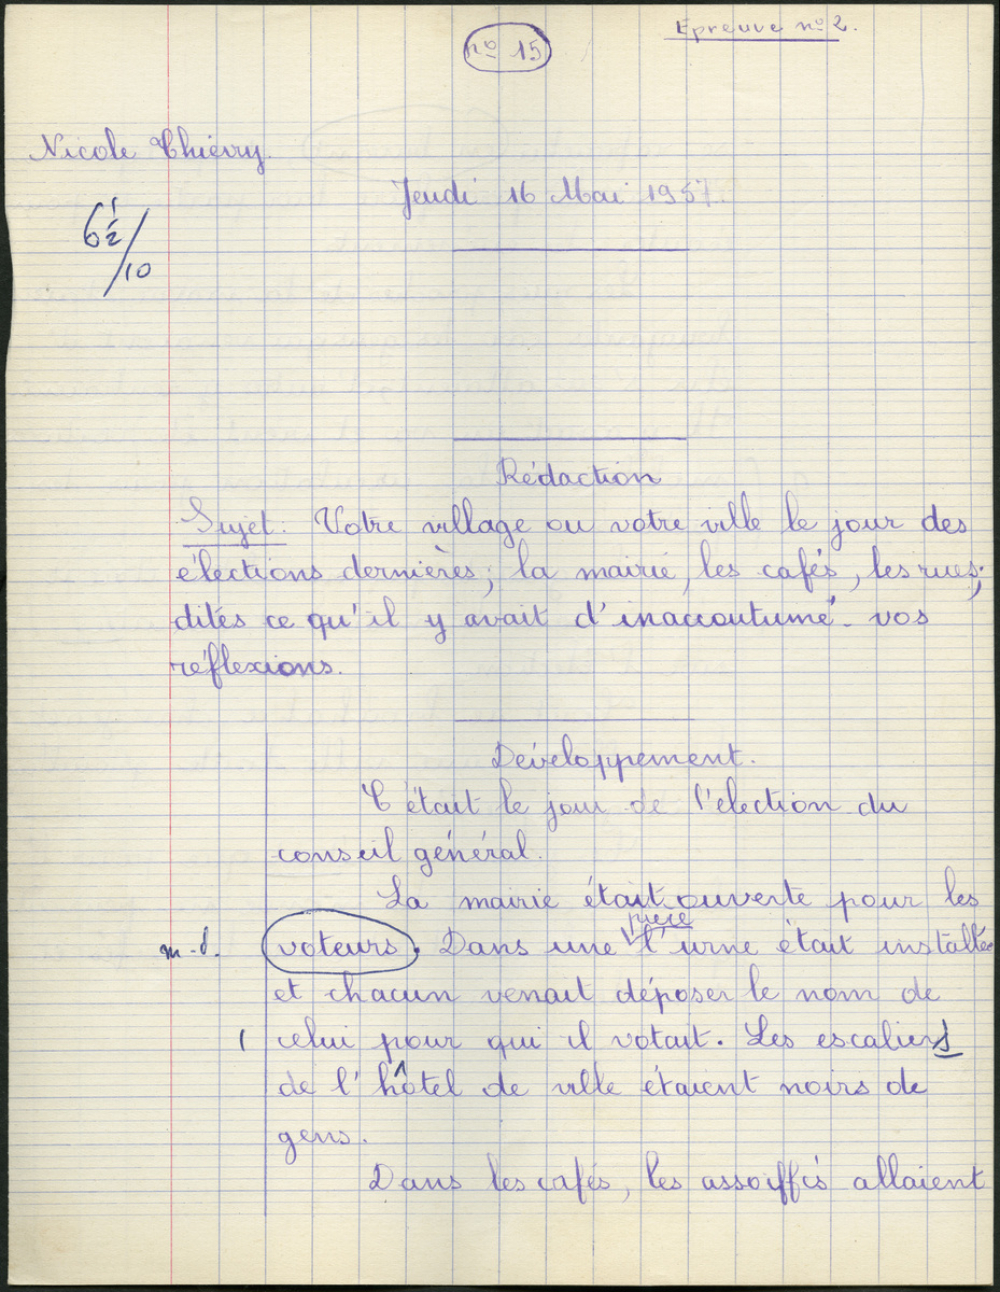 Epreuve nº 2.
nº 15
Nicole Thiérry.
Jeudi 16 Mai 1957.
6 1/2 /10
Rédaction
Sujet : Votre village ou votre ville le jour des
élections dernières; la mairie, les cafés, les rues;
dités ce qu'il y avait d'inaccoutumé. vos
réflexions.
Développement.
C'était le jour de l'élection du
conseil général.
La mairie était ouverte pour les
m-d. voteurs. Dans une pièce l'urne était installée
et chacun venait déposer le nom de
1 celui pour qui il votait. Les escaliers
de l'hôtel de ville étaient noirs de
gens.
Dans les cafés, les assoiffés allaient